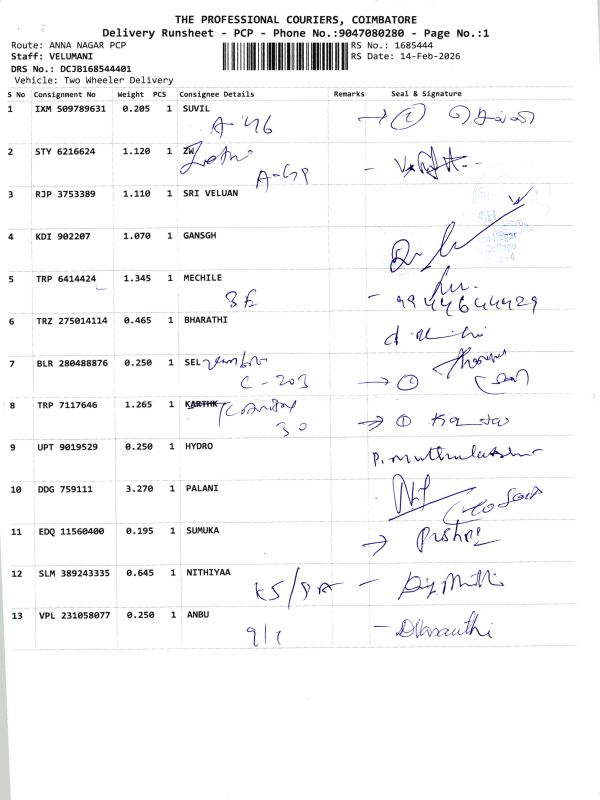 THE PROFESSIONAL COURIERS, COIMBATORE
Delivery Runsheet - PCP - Phone No.:9047080280 - Page No.:1
Route: ANNA NAGAR PCP RS No.: 1685444
Staff: VELUMANI RS Date: 14-Feb-2026
DRS No.: DCJB168544401
Vehicle: Two Wheeler Delivery
S No Consignment No Weight PCS Consignee Details Remarks Seal & Signature
1 IXM 509789631 0.205 1 SUVIL
2 STY 6216624 1.120 1 ZW
3 RJP 3753389 1.110 1 SRI VELUAN
4 KDI 902207 1.070 1 GANSGH
5 TRP 6414424 1.345 1 MECHILE
9944644429
6 TRZ 275014114 0.465 1 BHARATHI
7 BLR 280488876 0.250 1 SEL
C - 203
8 TRP 7117646 1.265 1 KARTHK
30
9 UPT 9019529 0.250 1 HYDRO
P. Muthulakshmi
10 DDG 759111 3.270 1 PALANI
11 EDQ 11560400 0.195 1 SUMUKA
12 SLM 389243335 0.645 1 NITHIYAA
13 VPL 231058077 0.250 1 ANBU
9/7 - DVasanthi